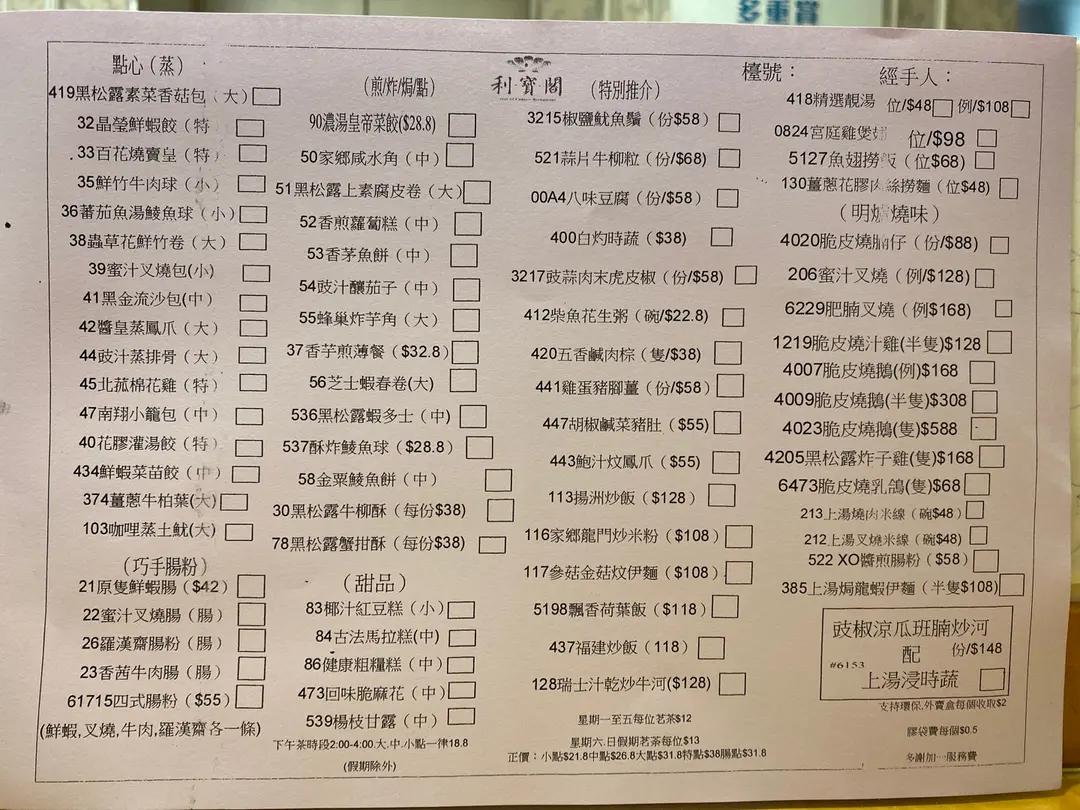 多重賞
利寶閣
檯號：
經手人：
點心（蒸）
419黑松露素菜香菇包（大）
32晶瑩鮮蝦餃（特
33百花燒賣皇（特）
35鮮竹牛肉球（小）
36蕃茄魚湯鯪魚球（小）
38蟲草花鮮竹卷（大）
39蜜汁叉燒包(小)
41黑金流沙包(中）
42醬皇蒸鳳爪（大）
44豉汁蒸排骨（大）
45北菰棉花雞（特）
47南翔小籠包（中）
40花膠灌湯餃（特）
434鮮蝦菜苗餃（中）
374薑蔥牛柏葉(大)
103咖哩蒸土魷(大)
(巧手腸粉)
21原隻鮮蝦腸（$42）
22蜜汁叉燒腸（腸）
26羅漢齋腸粉（腸）
23香茜牛肉腸（腸）
61715四式腸粉（$55)
(鮮蝦,叉燒,牛肉,羅漢齋各一條)
(煎/炸/焗/點)
90濃湯皇帝菜餃($28.8)
50家鄉咸水角（中）
51黑松露上素腐皮卷（大）
52香煎蘿蔔糕（中）
53香茅魚餅（中）
54豉汁釀茄子（中）
55蜂巢炸芋角（大）
37香芋煎薄餐（$32.8)
56芝士蝦春卷(大)
536黑松露蝦多士（中）
537酥炸鯪魚球（$28.8）
58金粟鯪魚餅（中）
30黑松露牛柳酥（每份$38)
78黑松露蟹拑酥（每份$38)
（甜品）
83椰汁紅豆糕（小）
84古法馬拉糕(中)
86健康粗糧糕（中）
473回味脆麻花（中）
539楊枝甘露（中）
下午茶時段2:00-4:00.大.中.小點一律18.8
(假期除外)
(特別推介)
3215椒鹽魷魚鬚（份$58）
521蒜片牛柳粒（份/$68)
00A4八味豆腐（份/$58）
400白灼時蔬（$38)
3217豉蒜肉末虎皮椒（份/$58)
412柴魚花生粥（碗/$22.8)
420五香鹹肉棕（隻/$38)
441雞蛋豬腳薑（份/$58）
447胡椒鹹菜豬肚（$55)
443鮑汁炆鳳爪（$55）
113揚洲炒飯（$128）
116家鄉龍門炒米粉（$108）
117參菇金菇炆伊麵（$108）
5198飄香荷葉飯（$118）
437福建炒飯（118）
128瑞士汁乾炒牛河($128)
星期一至五每位茗茶$12
星期六.日假期茗茶每位$13
正價：小點$21.8中點$26.8大點$31.8特點$38腸點$31.8
418精選靚湯 位/$48 例/$108
0824宮庭雞煲 位/$98
5127魚翅撈飯（位$68）
130薑蔥花膠肉絲撈麵（位$48)
（明爐燒味）
4020脆皮燒腩仔（份/$88）
206蜜汁叉燒（例/$128）
6229肥腩叉燒（例$168）
1219脆皮燒汁雞(半隻)$128
4007脆皮燒鵝(例)$168
4009脆皮燒鵝(半隻)$308
4023脆皮燒鵝(隻)$588
4205黑松露炸子雞(隻)$168
6473脆皮燒乳鴿(隻)$68
213上湯燒肉米線（碗$48）
212上湯叉燒米線（碗$48)
522 XO醬煎腸粉（$58）
385上湯焗龍蝦伊麵（半隻$108)
豉椒涼瓜班腩炒河
配 份/$148
#6153
上湯浸時蔬
支持環保,外賣盒每個收取$2
膠袋費每個$0.5
多謝加一服務費